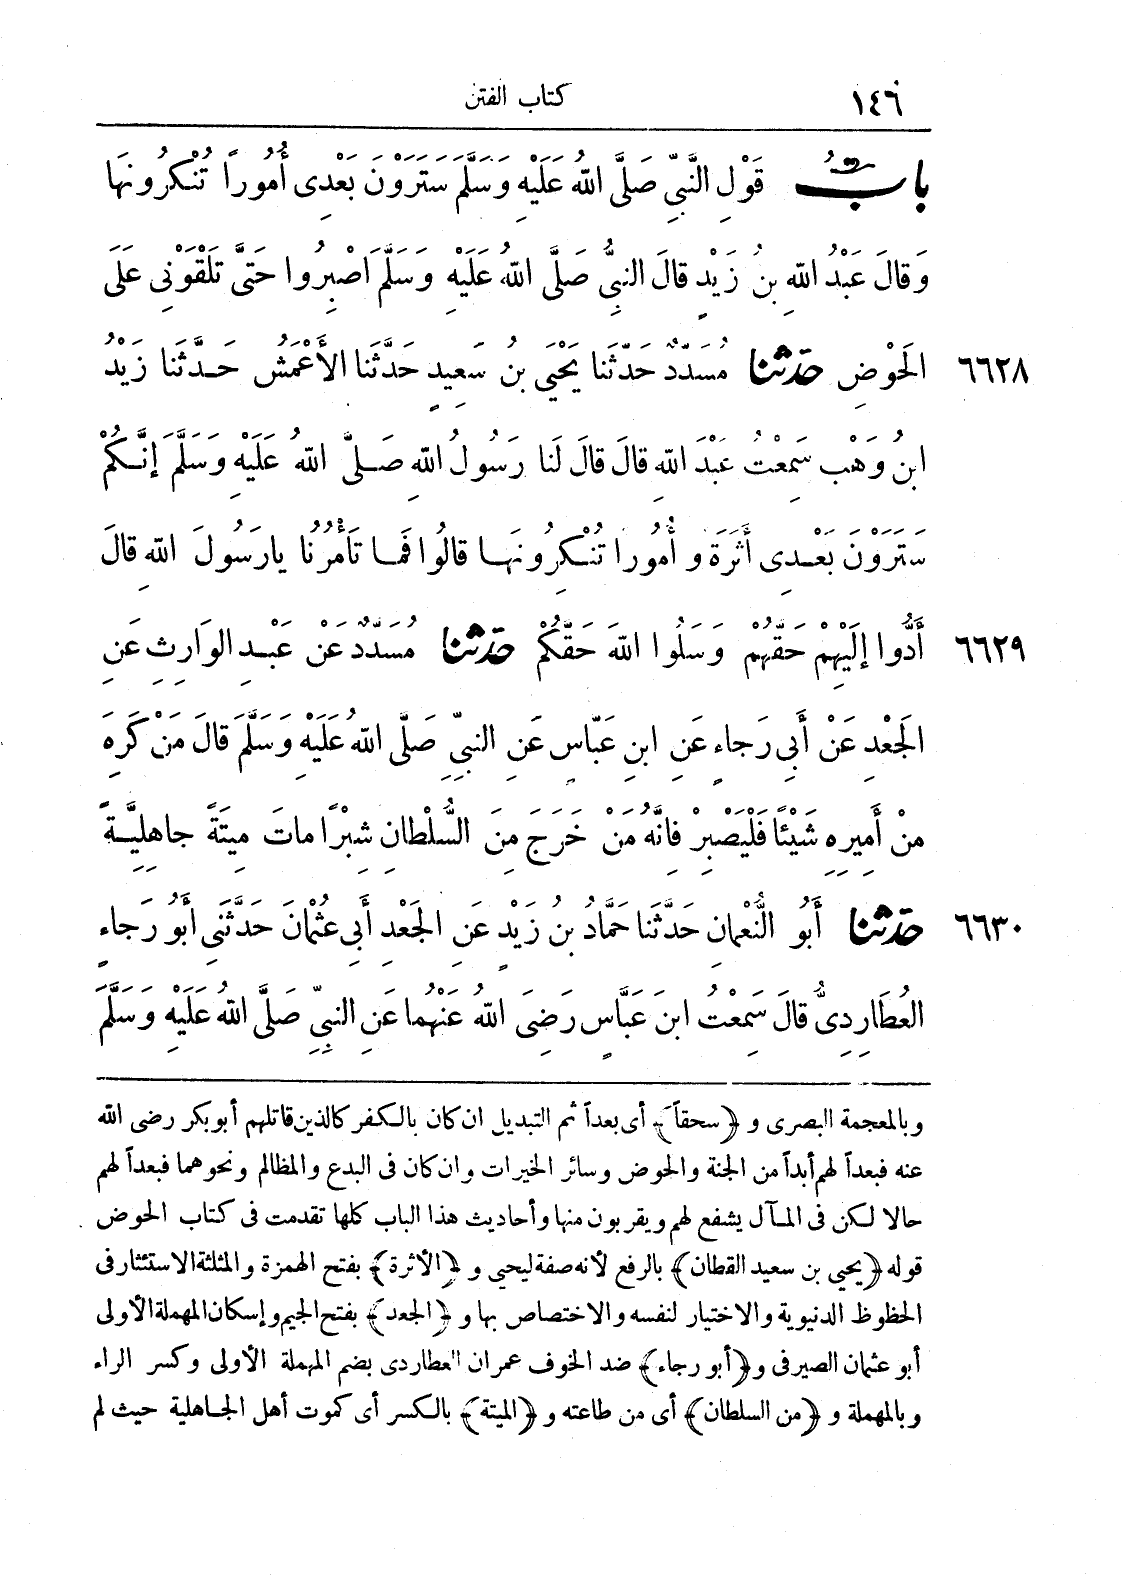 ١٤٦ كتاب الفتن
بابُ قَوْلِ النَّبِيِّ صَلَّى اللهُ عَلَيْهِ وَسَلَّمَ سَتَرَوْنَ بَعْدِى أُمُورًا تُنْكِرُونَهَا
وَقَالَ عَبْدُ اللهِ بنُ زَيْدٍ قَالَ النبىُّ صَلَّى اللهُ عَلَيْهِ وَسَلَّمَ اصْبِرُوا حَتَّى تَلْقَوْنِى عَلَى
٦٦٢٨ الحَوْضِ حَدَّثَنا مُسَدَّدٌ حَدَّثَنا يَحْيَى بنُ سَعِيدٍ حَدَّثَنا الأَعْمَشُ حَـدَّثَنا زَيْدُ
ابنُ وَهْبٍ سَمِعْتُ عَبْدَ اللهِ قَالَ قَالَ لَنا رَسُولُ اللهِ صَـلَّى اللهُ عَلَيْهِ وَسَلَّمَ إنَّـكُمْ
سَتَرَوْنَ بَعْـدِى أَثَرَةً وأُمُورا تُنْـكِرُونَهـا قالُوا فَمـا تَأْمُرُنا يارَسُولَ اللهِ قالَ
٦٦٢٩ أَدُّوا إلَيْهِمْ حَقَّهُمْ وَسَلُوا اللهَ حَقَّكُمْ حَدَّثَنا مُسَدَّدٌ عَنْ عَبْـدِ الوَارِثِ عَنِ
الجَعْدِ عَنْ أَبِى رَجاءٍ عَنِ ابنِ عَبَّاسٍ عَنِ النبيِّ صَلَّى اللهُ عَلَيْهِ وَسَلَّمَ قَالَ مَنْ كَرِهَ
مِنْ أَمِيرِهِ شَيْئًا فَلْيَصْبِرْ فانَّهُ مَنْ خَرَجَ مِنَ السُّلْطانِ شِبْرًا ماتَ مِيتَةً جاهِلِيَّـةً
٦٦٣٠ حَدَّثَنا أَبُو النُّعْمانِ حَدَّثَنا حَمَّادُ بنُ زَيْدٍ عَنِ الجَعْدِ أَبِى عُثْمانَ حَدَّثَنِى أَبُو رَجاءٍ
العُطَارِدِىُّ قالَ سَمِعْتُ ابنَ عَبَّاسٍ رَضِىَ اللهُ عَنْهُما عَنِ النبيِّ صَلَّى اللهُ عَلَيْهِ وَسَلَّمَ
وبالمعجمة البصرى و ﴿سحقاً﴾ أى بعداً ثم التبديل ان كان بالـكفر كالذين قاتلهم أبو بكر رضى الله
عنه فبعداً لهم أبداً من الجنة والحوض وسائر الخيرات وان كان فى البدع والمظالم ونحوهما فبعداً لهم
حالا لـكن فى المـآل يشفع لهم ويقربون منها وأحاديث هذا الباب كلها تقدمت فى كتاب الحوض
قوله ﴿يحيى بن سعيد القطان﴾ بالرفع لأنه صفة ليحيى و ﴿الأثرة﴾ بفتح الهمزة والمثلثة الاستئثار فى
الحظوظ الدنيوية والاختيار لنفسه والاختصاص بها و ﴿الجعد﴾ بفتح الجيم وإسكان المهملة الأولى
أبو عثمان الصيرفى و ﴿أبو رجاء﴾ ضد الخوف عمران العطاردى بضم المهملة الأولى وكسر الراء
وبالمهملة و ﴿من السلطان﴾ أى من طاعته و ﴿الميتة﴾ بالـكسر أى كموت أهل الجـاهلية حيث لم